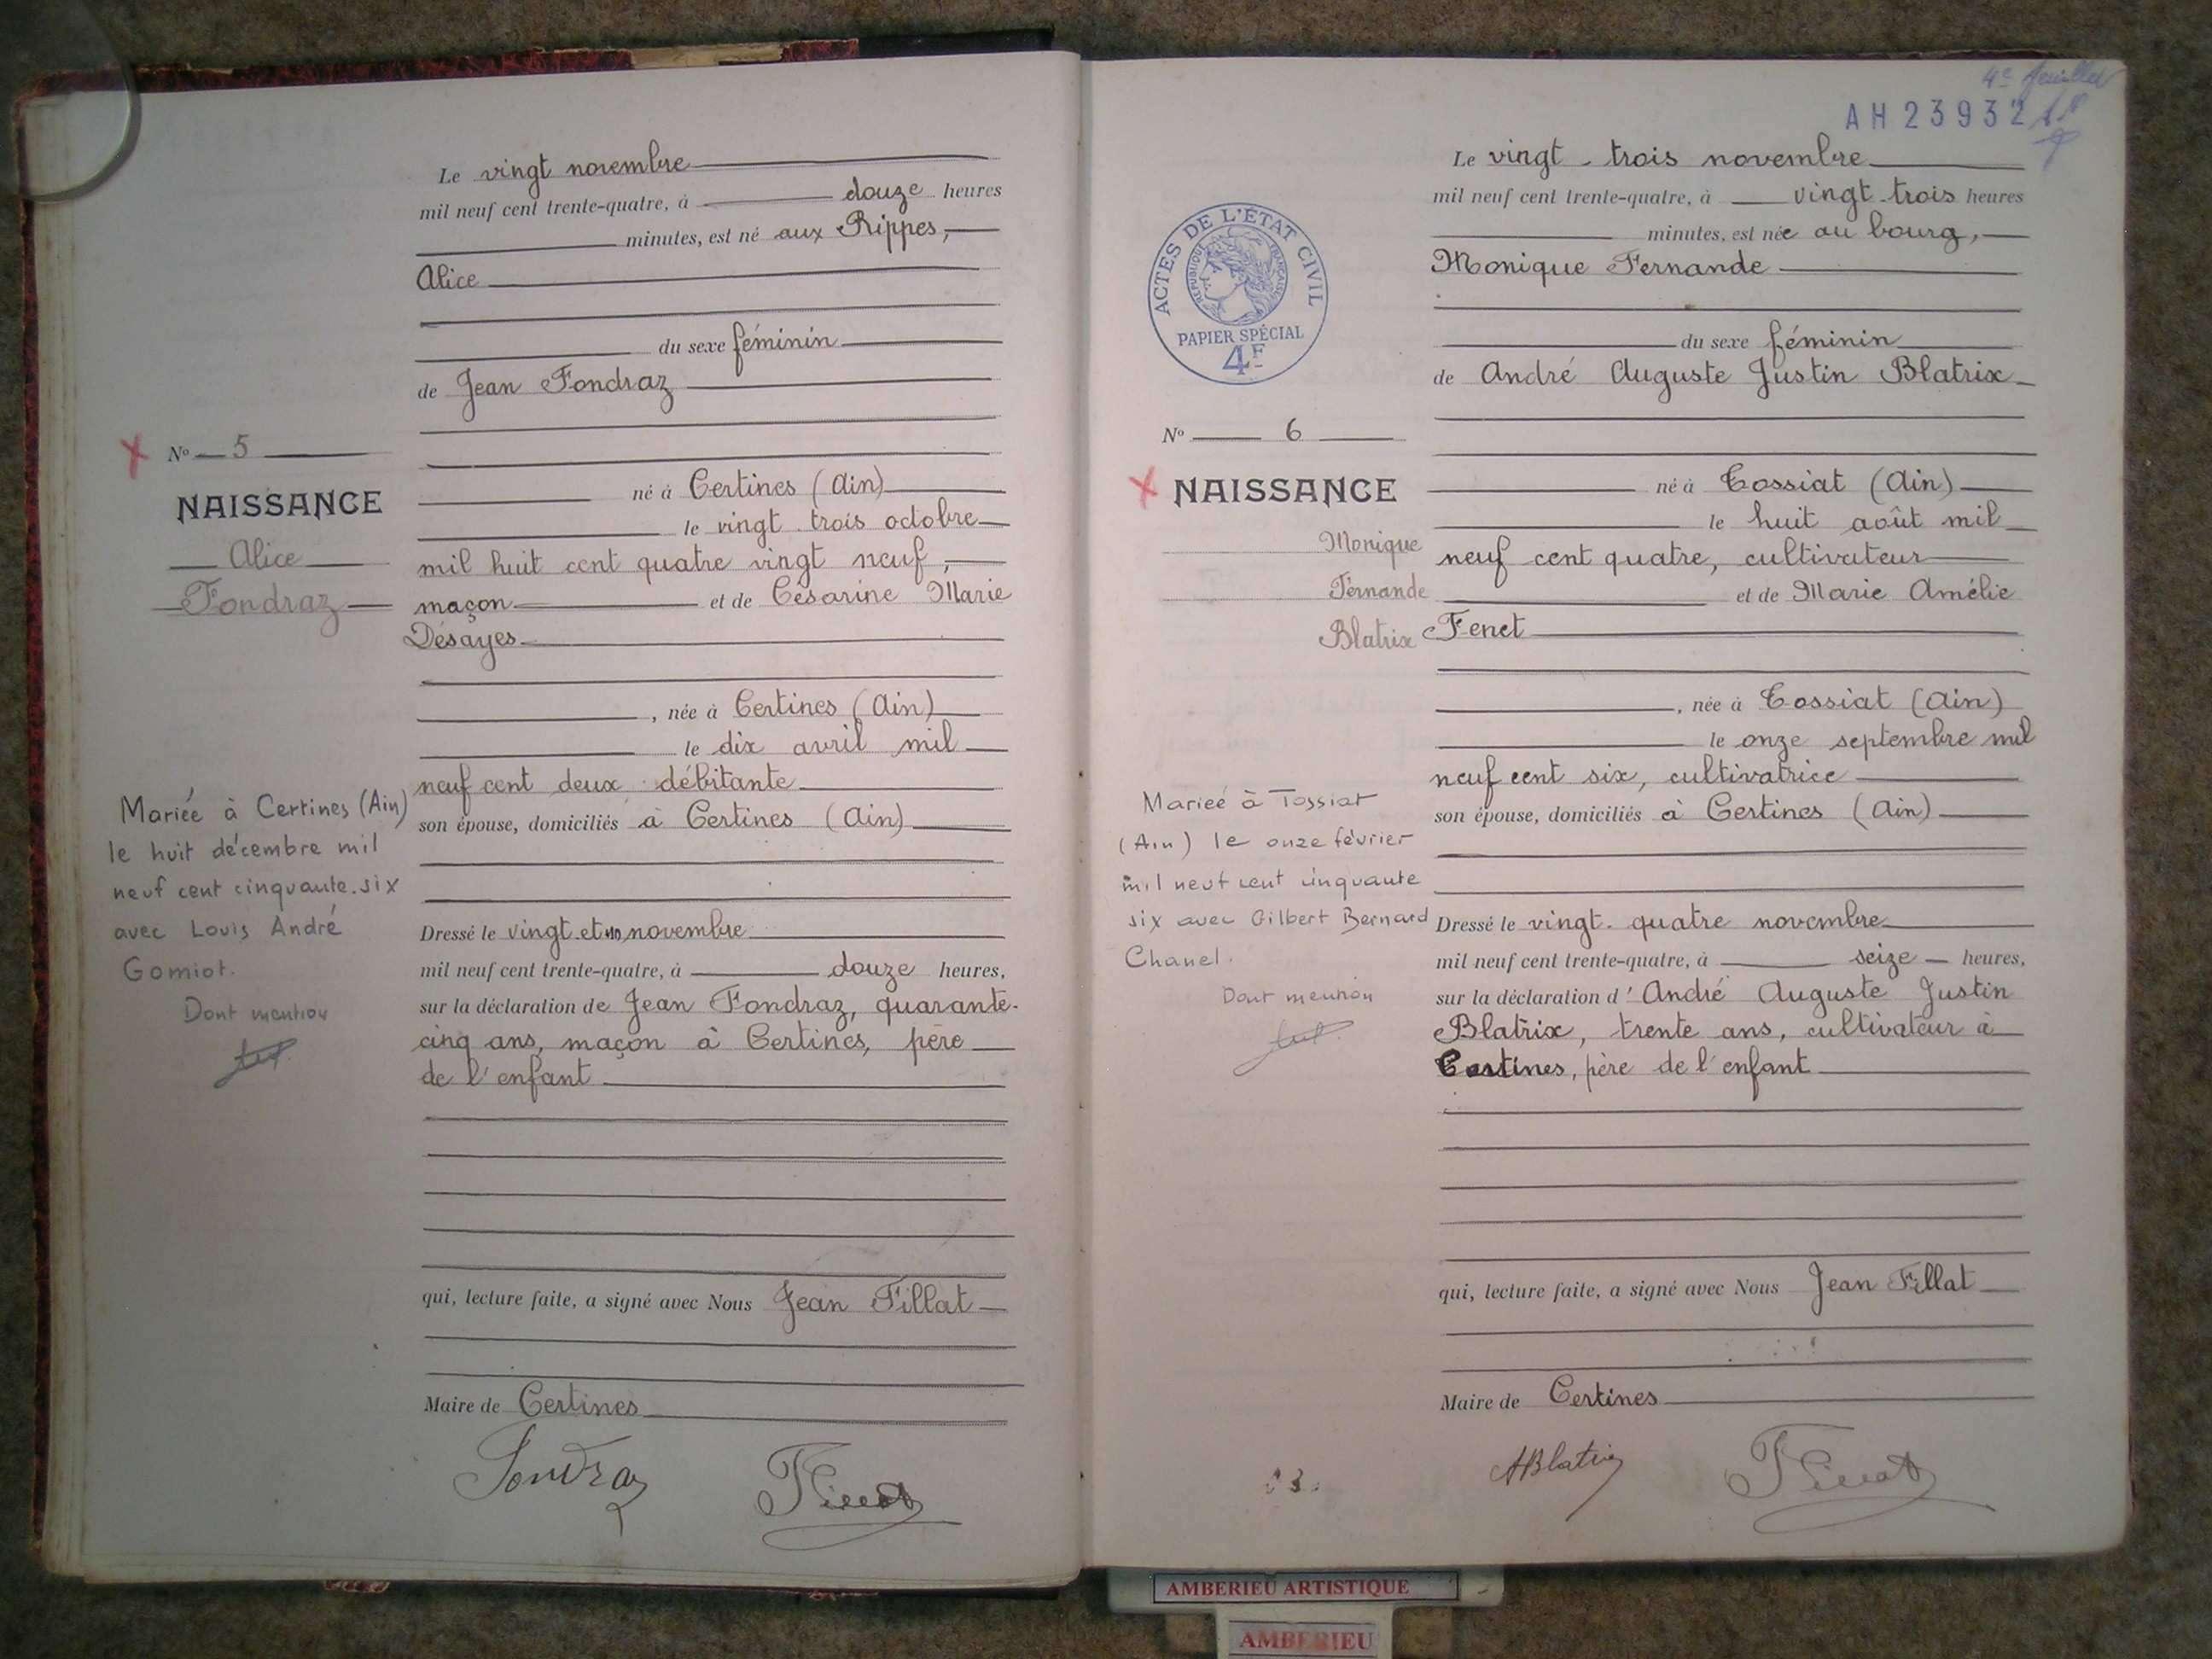 Le vingt novembre
mil neuf cent trente-quatre, à douze heures
minutes, est né aux Rippes,
Alice
du sexe féminin
de Jean Fondraz
N° 5
NAISSANCE
Alice
Fondraz
né à Certines (Ain)
le vingt trois octobre
mil huit cent quatre vingt neuf,
maçon et de Césarine Marie
Désayes
, née à Certines (Ain)
le dix avril mil
neuf cent deux débitante
son épouse, domiciliés à Certines (Ain)
Mariée à Certines (Ain)
le huit décembre mil
neuf cent cinquante-six
avec Louis André
Gomiot.
Dont mention
Dressé le vingt et un novembre
mil neuf cent trente-quatre, à douze heures,
sur la déclaration de Jean Fondraz, quarante-
cinq ans, maçon à Certines, père
de l'enfant
qui, lecture faite, a signé avec Nous Jean Fillat
Maire de Certines
Fondraz
4e feuillet
AH23932
Le vingt-trois novembre
mil neuf cent trente-quatre, à vingt-trois heures
minutes, est née au bourg,
Monique Fernande
ACTES DE L'ÉTAT CIVIL
RÉPUBLIQUE FRANÇAISE
PAPIER SPÉCIAL
4F
du sexe féminin
de André Auguste Justin Blatrix
N° 6
NAISSANCE
Monique
Fernande
Blatrix
né à Tossiat (Ain)
le huit août mil
neuf cent quatre, cultivateur
et de Marie Amélie
Fenet
, née à Tossiat (Ain)
le onze septembre mil
neuf cent six, cultivatrice
son épouse, domiciliés à Certines (Ain)
Mariée à Tossiat
(Ain) le onze février
mil neuf cent cinquante
six avec Gilbert Bernard
Chanel.
Dont mention
Dressé le vingt-quatre novembre
mil neuf cent trente-quatre, à seize heures,
sur la déclaration d'André Auguste Justin
Blatrix, trente ans, cultivateur à
Certines, père de l'enfant
qui, lecture faite, a signé avec Nous Jean Fillat
Maire de Certines
ABlatrix
AMBERIEU ARTISTIQUE
AMBERIEU